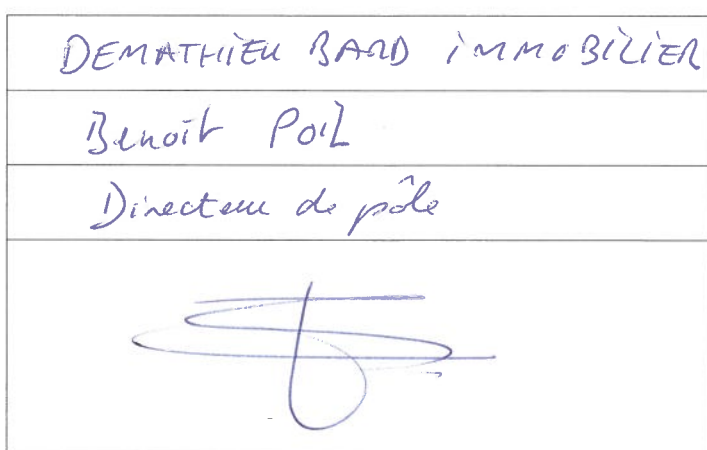 DEMATHIEU BARD IMMOBILIER
Benoît POIL
Directeur de pôle